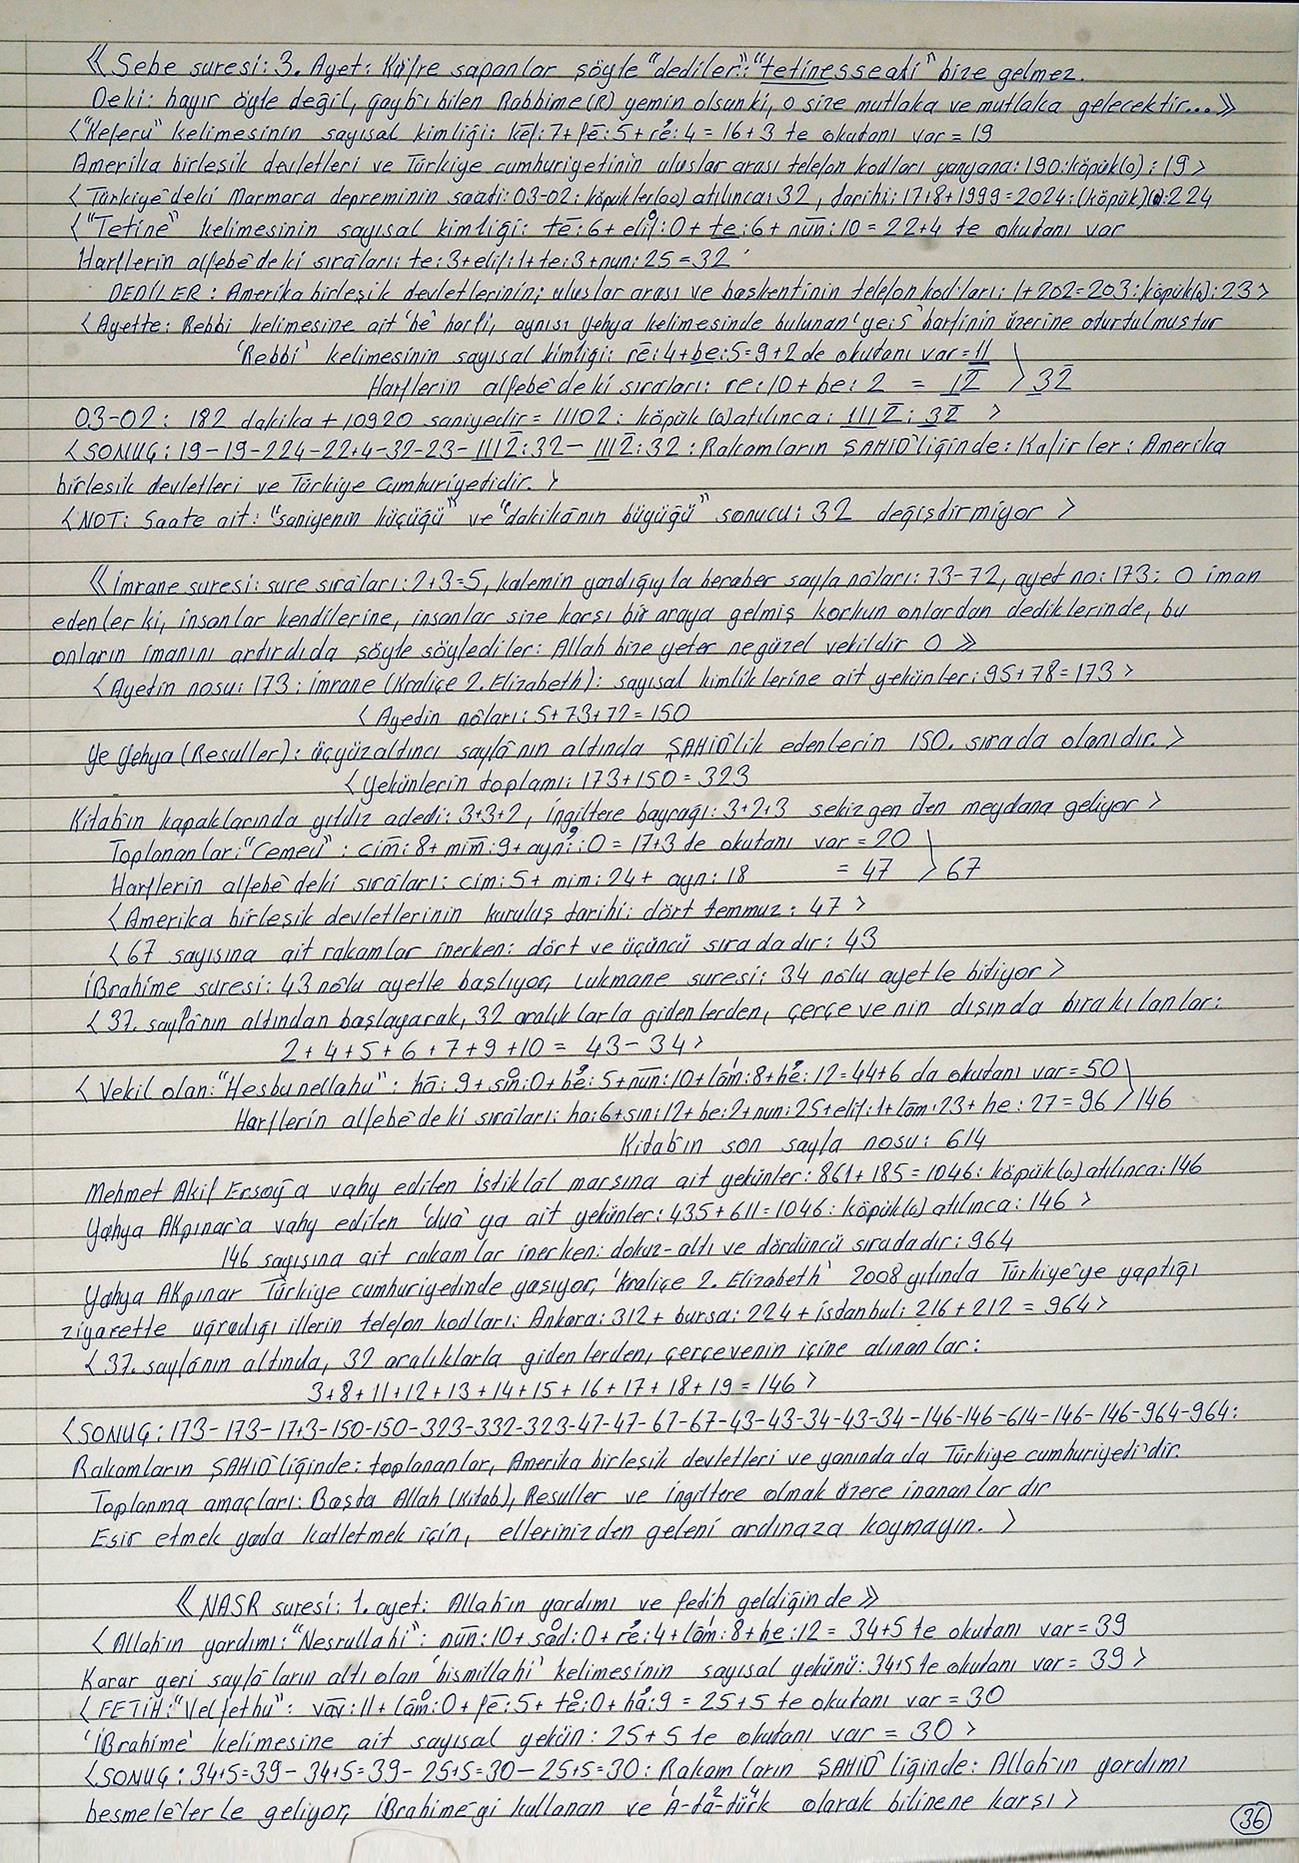 《 Sebe suresi: 3. Ayet: Küfre sapanlar şöyle "dediler": "tetinesseati" bize gelmez.
Deki: hayır öyle değil, gaybı bilen Rabbime (R) yemin olsunki, o size mutlaka ve mutlaka gelecektir...》
〈 "Keferu" kelimesinin sayısal kimliği: kef: 7 + fe: 5 + re: 4 = 16 + 3 te okutanı var = 19
Amerika birleşik devletleri ve Türkiye cumhuriyetinin uluslar arası telefon kodları yanyana: 190: köpük(o): 19 〉
〈 Türkiye'deki Marmara depreminin saati: 03-02: köpükler(oo) atılınca: 32, tarihi: 17+8+1999=2024: (köpük)(o): 224
〈 "Tetine" kelimesinin sayısal kimliği: te: 6 + elif: 0 + te: 6 + nun: 10 = 22+4 te okutanı var
Harflerin alfebe'deki sıraları: te: 3 + elif: 1 + te: 3 + nun: 25 = 32
DEDİLER: Amerika birleşik devletlerinin; uluslar arası ve baskentinin telefon kodları: 1+202=203: köpük(o): 23 〉
〈 Ayette: Rebbi kelimesine ait 'be' harfi, aynısı Yehya kelimesinde bulunan 'ye: 5' harfinin üzerine oturtulmustur
'Rebbi' kelimesinin sayısal kimliği: re: 4 + be: 5 = 9 + 2 de okutanı var = 11
Harflerin alfebe'deki sıraları: re: 10 + be: 2 = 12 〉 32
03-02: 182 dakika + 10920 saniyedir = 11102: köpük (o) atılınca: 1112: 32 〉
〈 SONUÇ: 19-19-224-22+4-32-23-1112:32-1112:32: Rakamların ŞAHİD'liğinde: Kafirler: Amerika
birleşik devletleri ve Türkiye Cumhuriyetidir. 〉
〈 NOT: Saate ait: "saniyenin küçüğü" ve "dakikanın büyüğü" sonucu: 32 değişdirmiyor 〉
《 İmrane suresi: sure sıraları: 2+3=5, kalemin yandığıyla beraber sayfa noları: 73-72, ayet no: 173: O iman
edenler ki, insanlar kendilerine, insanlar size karşı bir araya gelmiş korkun onlardan dediklerinde, bu
onların imanını artırdıda şöyle söylediler: Allah bize yeter negüzel vekildir O 》
〈 Ayetin nosu: 173: İmrane (Kraliçe 2. Elizabeth): sayısal kimliklerine ait yekünler: 95+78=173 〉
〈 Ayetin noları: 5+73+72=150
Ye Yehya (Resuller): üçyüzaltıncı sayfa'nın altında ŞAHİD'lik edenlerin 150. sırada olanıdır. 〉
〈 Yekünlerin toplamı: 173+150=323
Kitab'ın kapaklarında yıldız adedi: 3+3+2, İngiltere bayrağı: 3+2+3 sekizgen'den meydana geliyor 〉
Toplananlar: "Cemeu": cim: 8 + mim: 9 + ayn: 0 = 17+3 te okutanı var = 20
Harflerin alfebe'deki sıraları: cim: 5 + mim: 24 + ayn: 18 = 47 〉 67
〈 Amerika birleşik devletlerinin kuruluş tarihi: dört temmuz: 47 〉
〈 67 sayısına ait rakamlar inerken: dört ve üçüncü sıradadır: 43
İBrahime suresi: 43 nolu ayetle başlıyor, Lukmane suresi: 34 nolu ayetle bitiyor 〉
〈 37. sayfa'nın altından başlayarak, 32 aralıklarla gidenlerden, çerçevenin dışında bırakılanlar:
2+4+5+6+7+9+10 = 43-34 〉
〈 Vekil olan: "Hesbunellahu": ha: 9 + sin: 0 + be: 5 + nun: 10 + lam: 8 + he: 12 = 44+6 da okutanı var = 50
Harflerin alfebe'deki sıraları: ha: 6 + sin: 12 + be: 2 + nun: 25 + elif: 1 + lam: 23 + he: 27 = 96 〉 146
Kitab'ın son sayfa nosu: 614
Mehmet Akif Ersoy'a vahy edilen İstiklal marsına ait yekünler: 861+185=1046: köpük(o) atılınca: 146
Yahya AKpınar'a vahy edilen 'dua' ya ait yekünler: 435+611=1046: köpük(o) atılınca: 146 〉
146 sayısına ait rakamlar inerken: dokuz-altı ve dördüncü sıradadır: 964
Yahya AKpınar Türkiye cumhuriyetinde yaşıyor, 'kraliçe 2. Elizabeth' 2008 yılında Türkiye'ye yaptığı
ziyarette uğradığı illerin telefon kodları: Ankara: 312 + bursa: 224 + isdanbul: 216+212 = 964 〉
〈 37. sayfanın altında, 32 aralıklarla gidenlerden, çerçevenin içine alınanlar:
3+8+11+12+13+14+15+16+17+18+19=146 〉
〈 SONUÇ: 173-173-17+3-150-150-323-332-323-47-47-67-67-43-43-34-43-34-146-146-614-146-146-964-964:
Rakamların ŞAHİD'liğinde: toplananlar, Amerika birleşik devletleri ve yanında da Türkiye cumhuriyeti'dir.
Toplanma amaçları: Başta Allah (Kitab), Resuller ve İngiltere olmak üzere inananlardır
Esir etmek yada katletmek için, ellerinizden geleni ardınaza koymayın. 〉
《 NASR suresi: 1. ayet: Allah'ın yardımı ve fetih geldiğinde 》
〈 Allah'ın yardımı: "Nesrullahi": nun: 10 + sad: 0 + re: 4 + lam: 8 + he: 12 = 34+5 te okutanı var = 39
Karar geri sayfa'ların altı olan 'bismillahi' kelimesinin sayısal yekünü: 34+5 te okutanı var = 39 〉
〈 FETİH: "Velfethu": vav: 11 + lam: 0 + fe: 5 + te: 0 + ha: 9 = 25+5 te okutanı var = 30
'İBrahime' kelimesine ait sayısal yekün: 25+5 te okutanı var = 30 〉
〈 SONUÇ: 34+5=39-34+5=39-25+5=30-25+5=30: Rakamların ŞAHİD'liğinde: Allah'ın yardımı
besmele'lerle geliyor, İBrahime'yi kullanan ve A-ta²-türk⁴ olarak bilinene karşı 〉
36